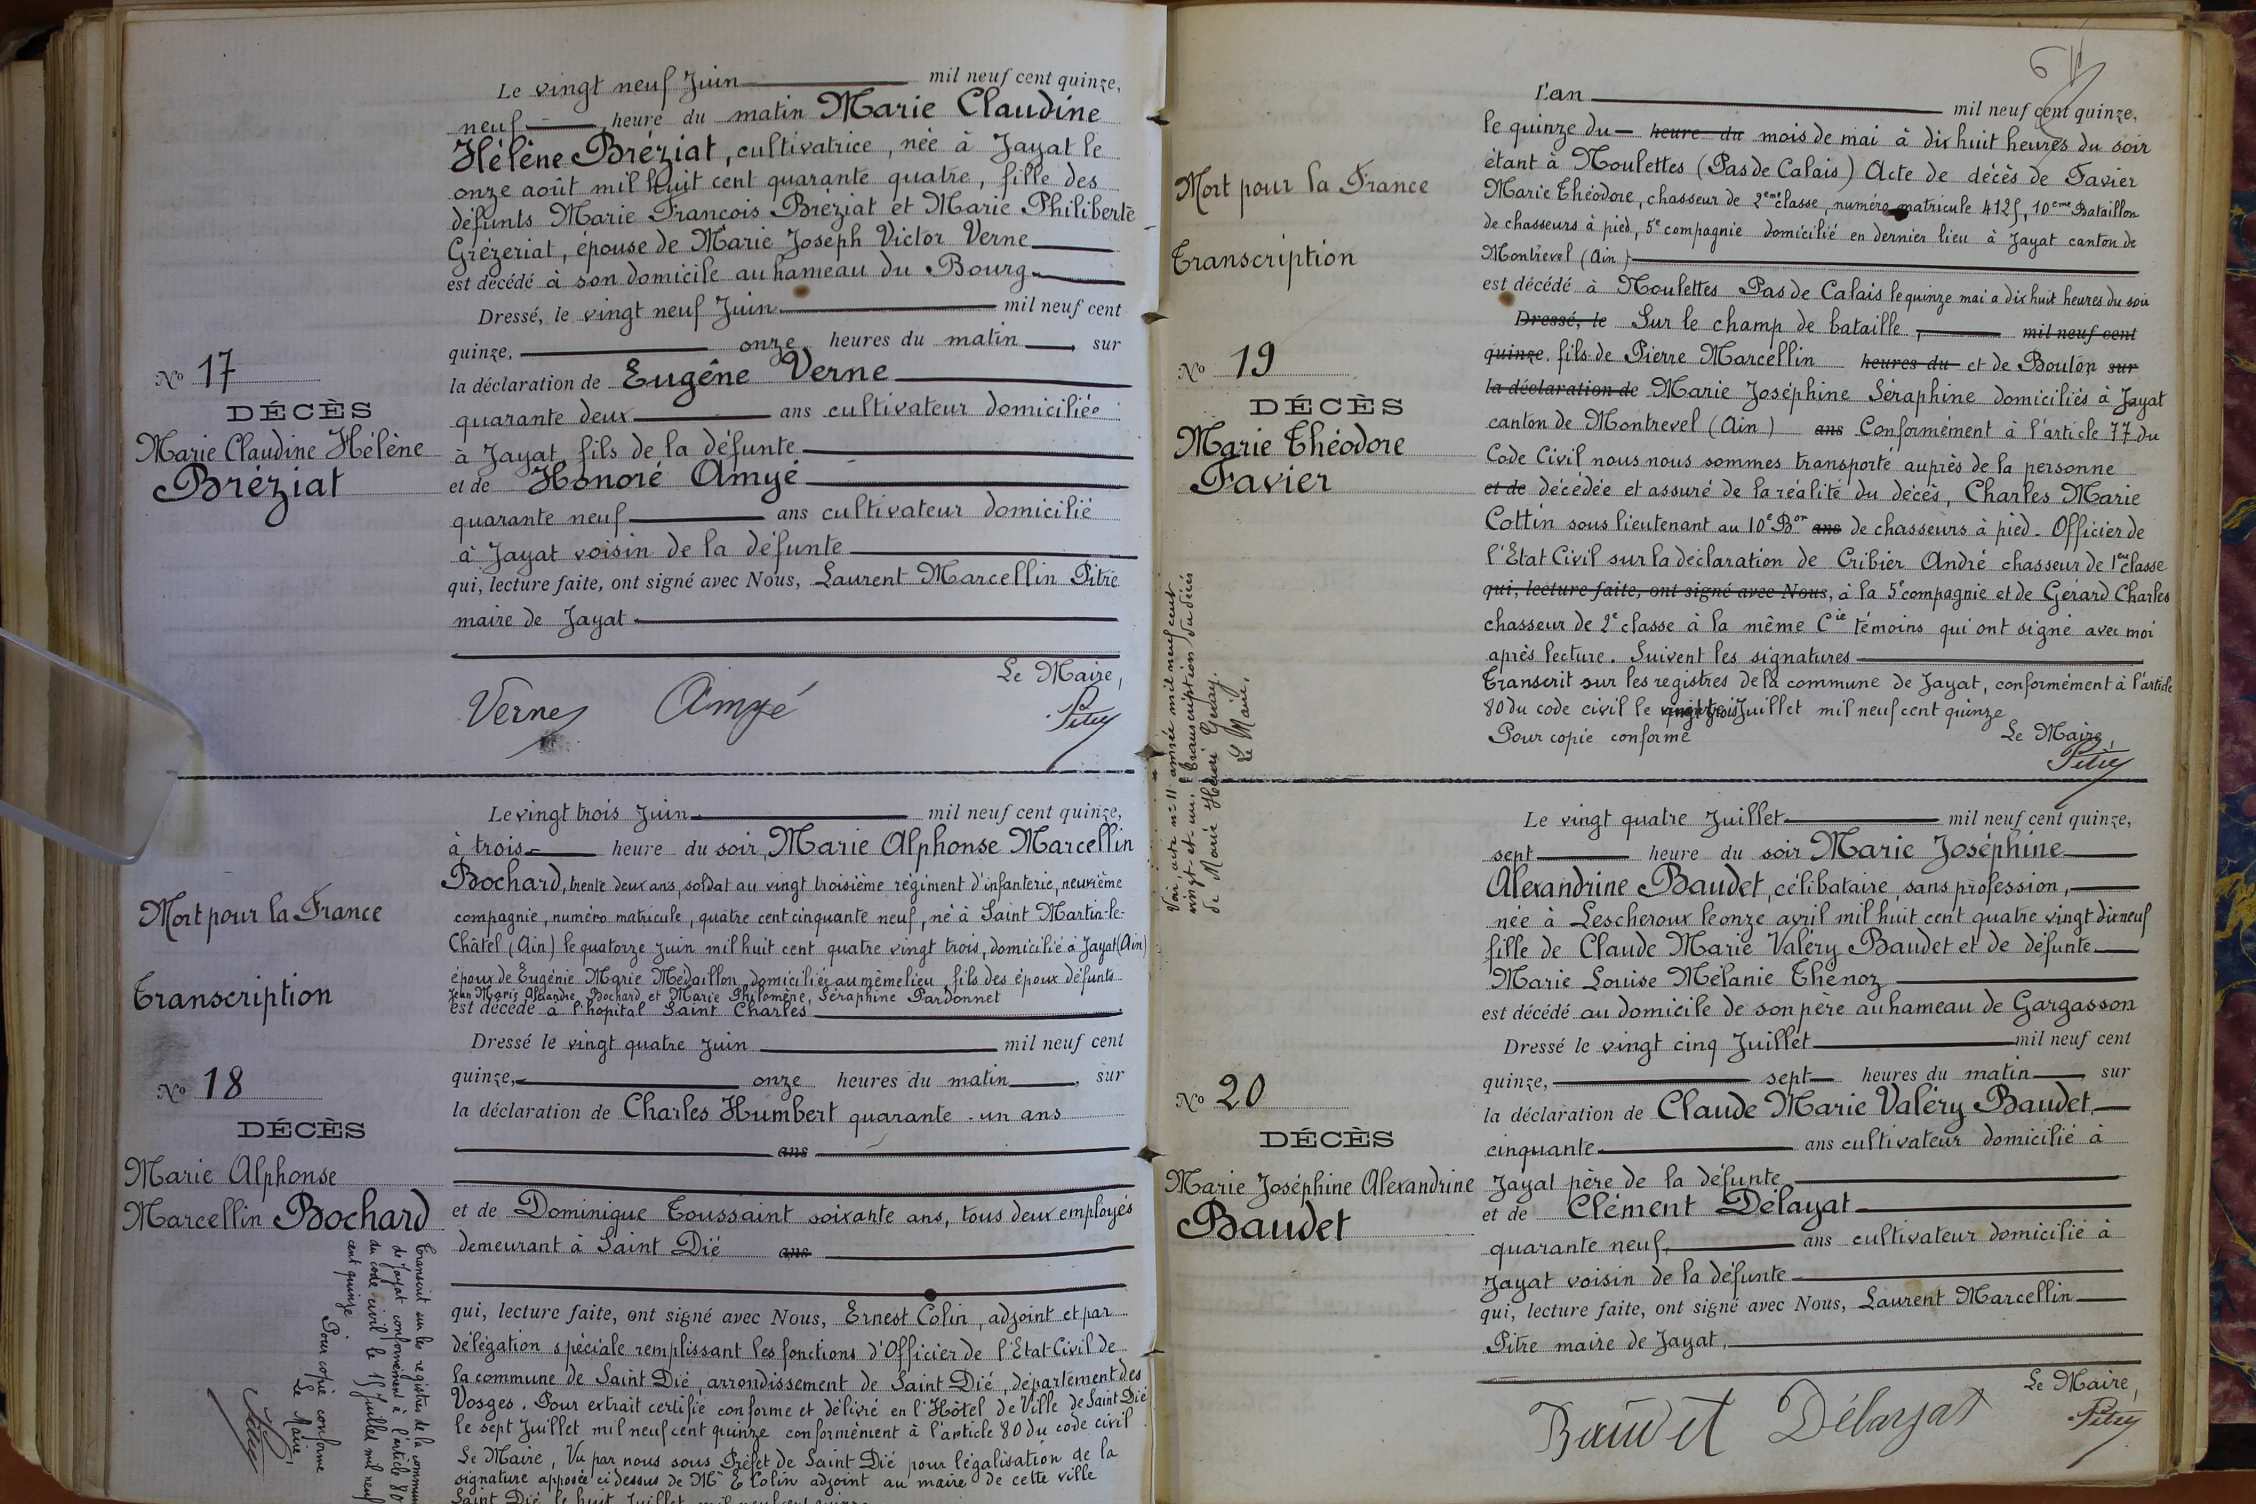 Le vingt neuf Juin mil neuf cent quinze,
neuf heure du matin Marie Claudine
Hélène Bréziat, cultivatrice, née à Jayat le
onze août mil huit cent quarante quatre, fille des
défunts Marie François Bréziat et Marie Philiberte
Grézeriat, épouse de Marie Joseph Victor Verne
est décédé à son domicile au hameau du Bourg
Dressé, le vingt neuf Juin mil neuf cent
quinze, onze heures du matin, sur
la déclaration de Eugêne Verne
quarante deux ans cultivateur domicilié
à Jayat fils de la défunte
et de Honoré Amyé
quarante neuf ans cultivateur domicilié
à Jayat voisin de la défunte
qui, lecture faite, ont signé avec Nous, Laurent Marcellin Pitre
maire de Jayat
Le Maire,
Verne Amyé Pitre
No 17
DÉCÈS
Marie Claudine Hélène
Bréziat
Le vingt trois Juin mil neuf cent quinze,
à trois heure du soir, Marie Alphonse Marcellin
Bochard, trente deux ans, soldat au vingt troisième régiment d'infanterie, neuvième
compagnie, numéro matricule, quatre cent cinquante neuf, né à Saint Martin-le-
Châtel (Ain) le quatorze juin mil huit cent quatre vingt trois, domicilié à Jayat (Ain)
époux de Eugénie Marie Médaillon domiciliée au même lieu, fils des époux défunts
Jean Marie Alexandre Bochard et Marie Philomène, Séraphine Pardonnet
est décédé à l'hôpital Saint Charles
Dressé le vingt quatre Juin mil neuf cent
quinze, onze heures du matin, sur
la déclaration de Charles Humbert quarante-un ans
ans
et de Dominique Toussaint soixante ans, tous deux employés
demeurant à Saint Dié ans
qui, lecture faite, ont signé avec Nous, Ernest Colin, adjoint et par
délégation spéciale remplissant les fonctions d'Officier de l'Etat-Civil de
la commune de Saint Dié, arrondissement de Saint Dié, département des
Vosges. Pour extrait certifié conforme et délivré en l'Hôtel de Ville de Saint Dié
le sept Juillet mil neuf cent quinze conformément à l'article 80 du code civil
Le Maire, Vu par nous sous Préfet de Saint Dié pour légalisation de la
signature apposée ci dessus de Mr E Colin adjoint au maire de cette ville
Saint Dié le huit Juillet mil neuf cent quinze
Mort pour la France
Transcription
No 18
DÉCÈS
Marie Alphonse
Marcellin Bochard
Transcrit sur les registres de la commune
de Jayat conformément à l'article 80
du code civil le 15 Juillet mil neuf
cent quinze Pour copie conforme
Le Maire,
Pitre
L'an mil neuf cent quinze,
le quinze du heure du mois de mai à dix huit heures du soir
étant à Noulettes (Pas de Calais) Acte de décès de Favier
Marie Théodore, chasseur de 2eme classe, numéro matricule 4125, 10eme Bataillon
de chasseurs à pied, 5e compagnie domicilié en dernier lieu à Jayat canton de
Montrevel (Ain)
est décédé à Noulettes Pas de Calais le quinze mai a dix huit heures du soir
Dressé, le Sur le champ de bataille, mil neuf cent
quinze. fils de Pierre Marcellin heures du et de Boulon sur
la déclaration de Marie Joséphine Séraphine domiciliés à Jayat
canton de Montrevel (Ain) ans Conformément à l'article 77 du
Code Civil nous nous sommes transporté auprès de la personne
et de décédée et assuré de la réalité du décès, Charles Marie
Cottin sous lieutenant au 10e Bon ans de chasseurs à pied. Officier de
l'Etat Civil sur la déclaration de Cribier André chasseur de 1ere classe
qui, lecture faite, ont signé avec Nous, à la 5e compagnie et de Gérard Charles
chasseur de 2e classe à la même Cie témoins qui ont signé avec moi
après lecture. Suivent les signatures
Transcrit sur les registres de la commune de Jayat, conformément à l'article
80 du code civil le vingt trois Juillet mil neuf cent quinze
Pour copie conforme Le Maire,
Pitre
Mort pour la France
Transcription
No 19
DÉCÈS
Marie Théodore
Favier
Voir, acte no 11 année mil neuf cent
vingt-et-un, transcription du décès
de Marie Henri
Le Maire,
Le vingt quatre Juillet mil neuf cent quinze,
sept heure du soir Marie Joséphine
Alexandrine Baudet, célibataire, sans profession,
née à Lescheroux le onze avril mil huit cent quatre vingt dix neuf
fille de Claude Marie Valéry Baudet et de défunte
Marie Louise Mélanie Thénoz
est décédé au domicile de son père au hameau de Gargasson
Dressé le vingt cinq Juillet mil neuf cent
quinze, sept heures du matin, sur
la déclaration de Claude Marie Valéry Baudet
cinquante ans cultivateur domicilié à
Jayat père de la défunte
et de Clément Délayat
quarante neuf, ans cultivateur domicilié à
Jayat voisin de la défunte
qui, lecture faite, ont signé avec Nous, Laurent Marcellin
Pitre maire de Jayat.
Le Maire,
Baudet Délayat Pitre
No 20
DÉCÈS
Marie Joséphine Alexandrine
Baudet